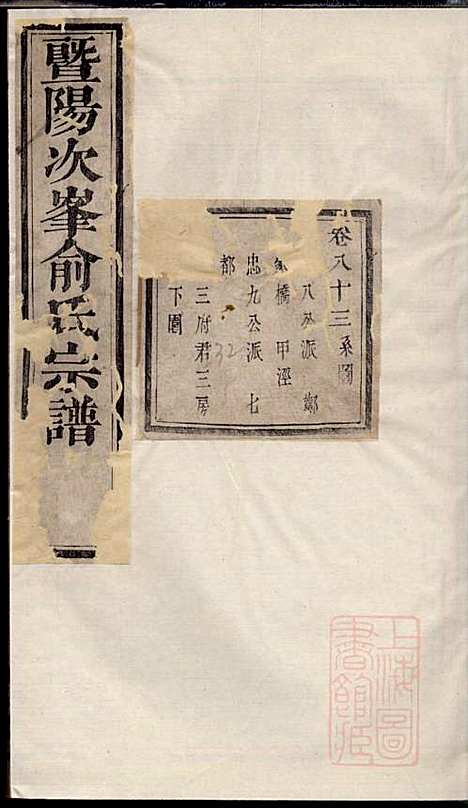 暨陽次峯俞氏宗譜
卷八十三系圖
八公派 鄭
橋 甲涇
忠九公派 七
都
三府君三房
下圖
32
上海圖
書館藏